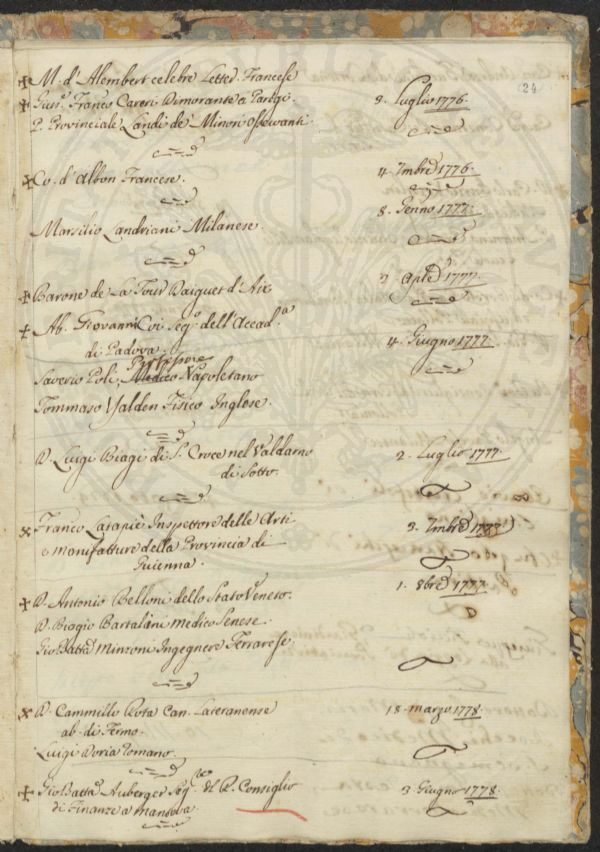 24
M. d'Alembert celebre Letter.º Francese
Gius.e Franco Careri Dimorante a Parigi
P. Provinciale Landi de' Minori Osservanti. 3. Luglio 1776.
Co. d'Albon Francese. 4. 7mbre 1776.
Marsilio Landriani Milanese. 8. Genno 1777.
Barone de La Tour d'Aix 2 Aple 1777
Ab. Giovanni Coi Seg.º dell'Accad.a
di Padova. 4. Giugno 1777
Saverio Poli, Professore Medico Napoletano
Tommaso Yalden Fisico Inglese.
D. Luigi Biagi di S. Croce nel Valdarno
di Sotto. 2. Luglio 1777.
Franco Lasapie Inspettore delle Arti
e manifatture della Provincia di
Guienna. 3. 7mbre 1777
D. Antonio Belloni dello Stato Veneto. 1. 8bre 1777.
D. Biagio Bartalini Medico Senese.
Gio Batta Minzoni Ingegnere Ferrarese
D. Cammillo Rota Can. Lateranense 18. marzo 1778.
ab. di Fermo.
Luigi Doria Romano.
Gio Batta Auberger Seg.rio del R. Consiglio 3 Giugno 1778.
di Finanze a Mantova.